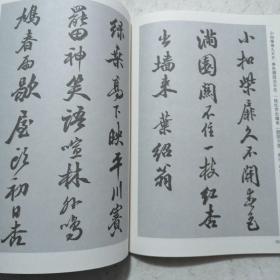 小扣柴扉久不開春色
滿園關不住一枝紅杏
出墙来葉紹翁
緑桑高下映平川賽
罷田神笑語喧林外鳴
鳩春雨歇屋頭初日杏